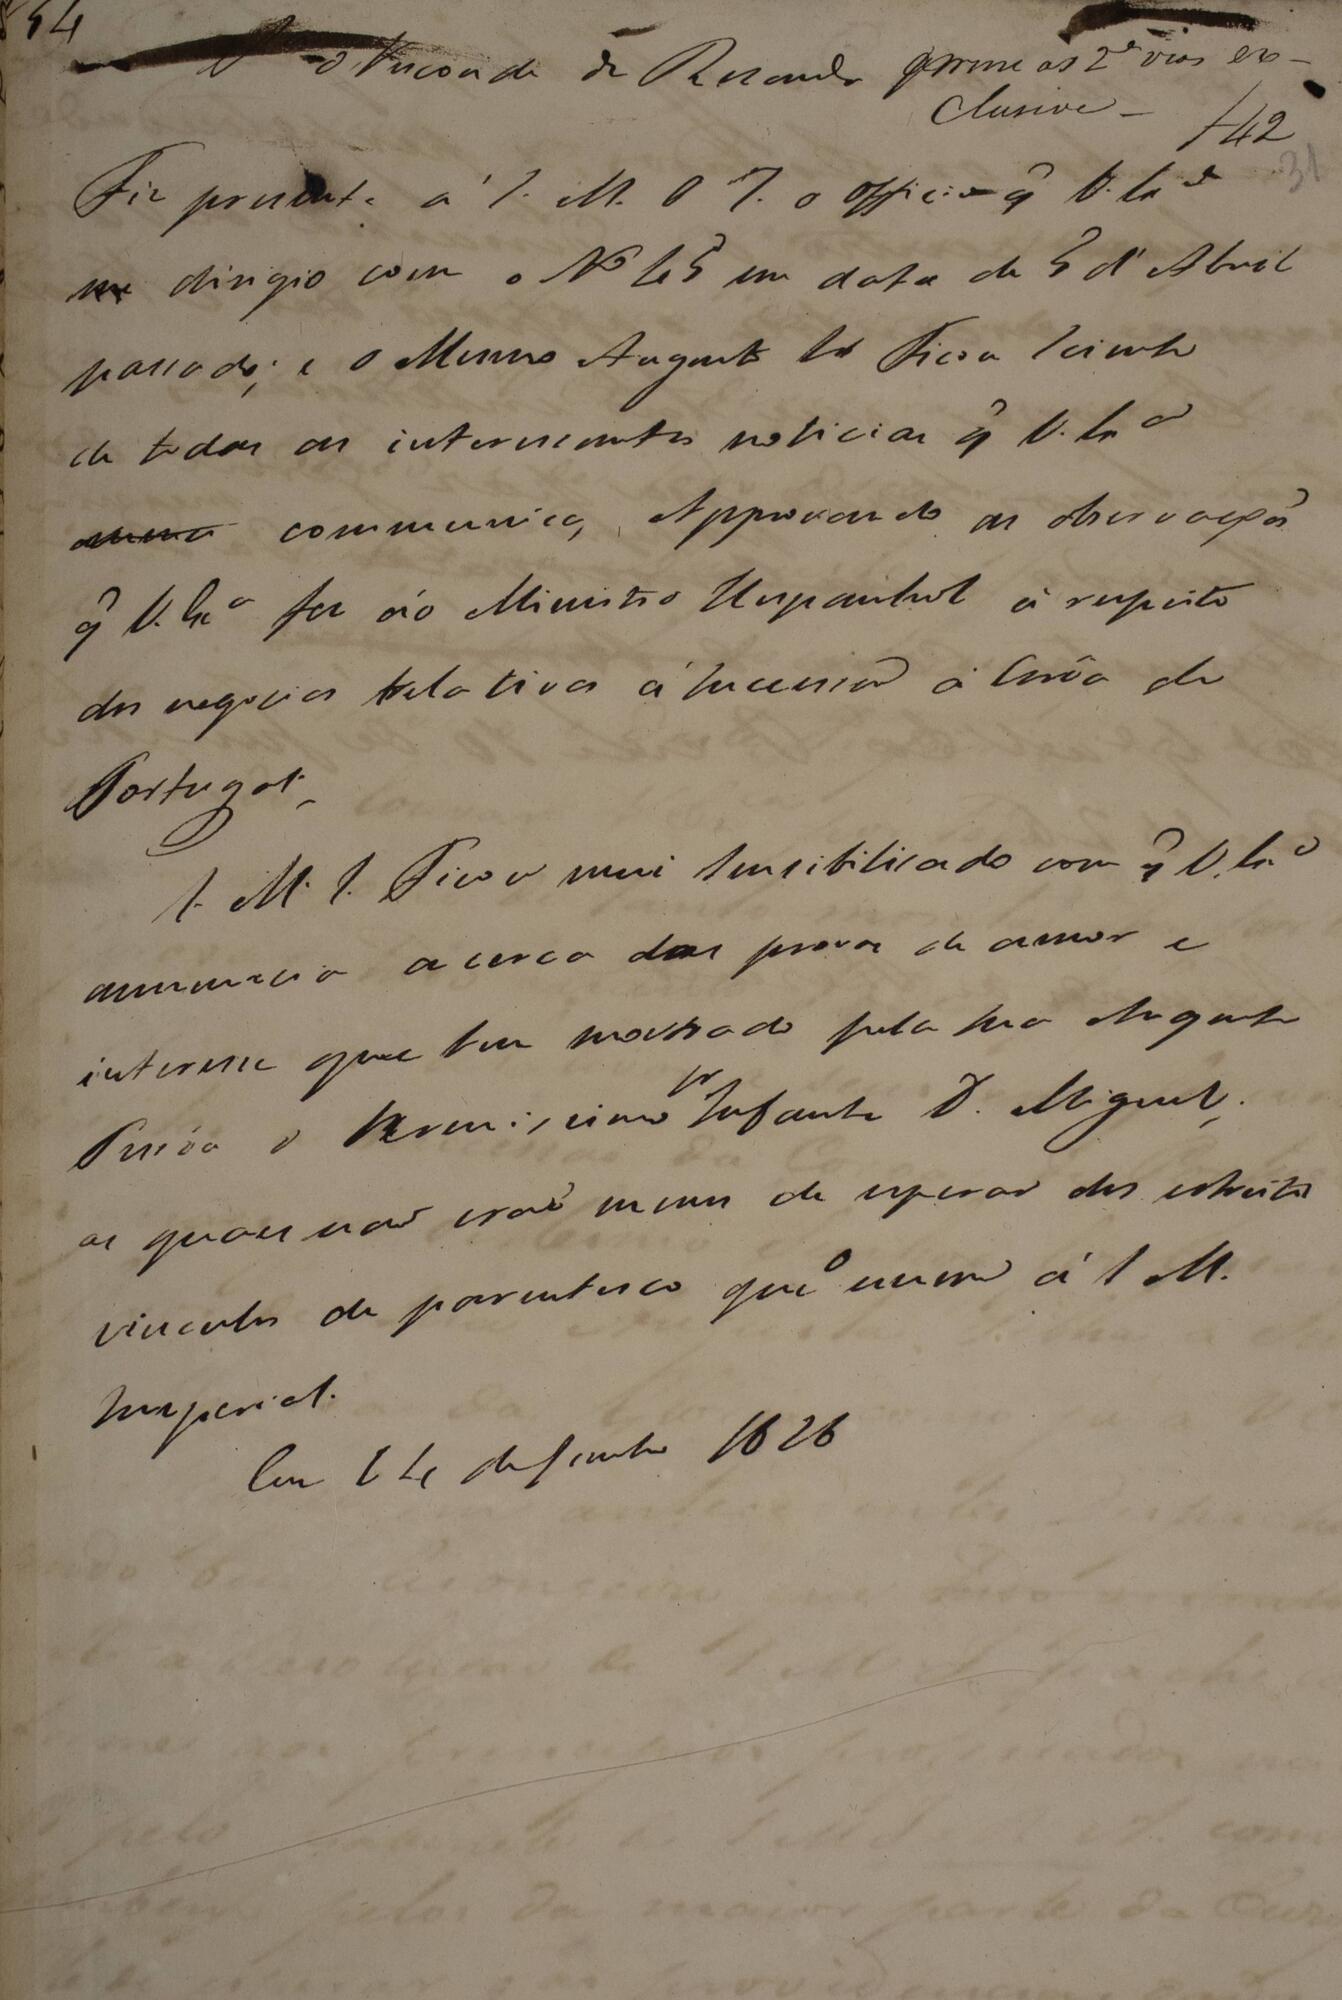 54
o Visconde de Rezende gemine as 2as vias ex-
clusive - 142
31
Fiz presente a S. M. O I. o officio q̃ V. Exa
me dirigio com o No 45 em data de 5 d'Abril
passado; e O Mesmo Augusto Sr Ficou sciente
de todas as interessantes noticias q̃ V. Exa
communica, Approvando as observações
q̃ V. Exa fez áo Ministro Hespanhol á respeito
dos negocios relativos á Successão á Corôa de
Portugal.
S. M. I. Ficou mui sensibilisado com q̃ V. Exa
annuncia acerca das provas de amor e
interesse que tem mostrado pela Sua Augusta
Pessôa o Serenissimo Sr Infante D. Miguel,
as quaes não erão menos de esperar dos estreitos
vinculos de parentesco que o unem á S M.
Imperial.
Em 14 de Junho 1826